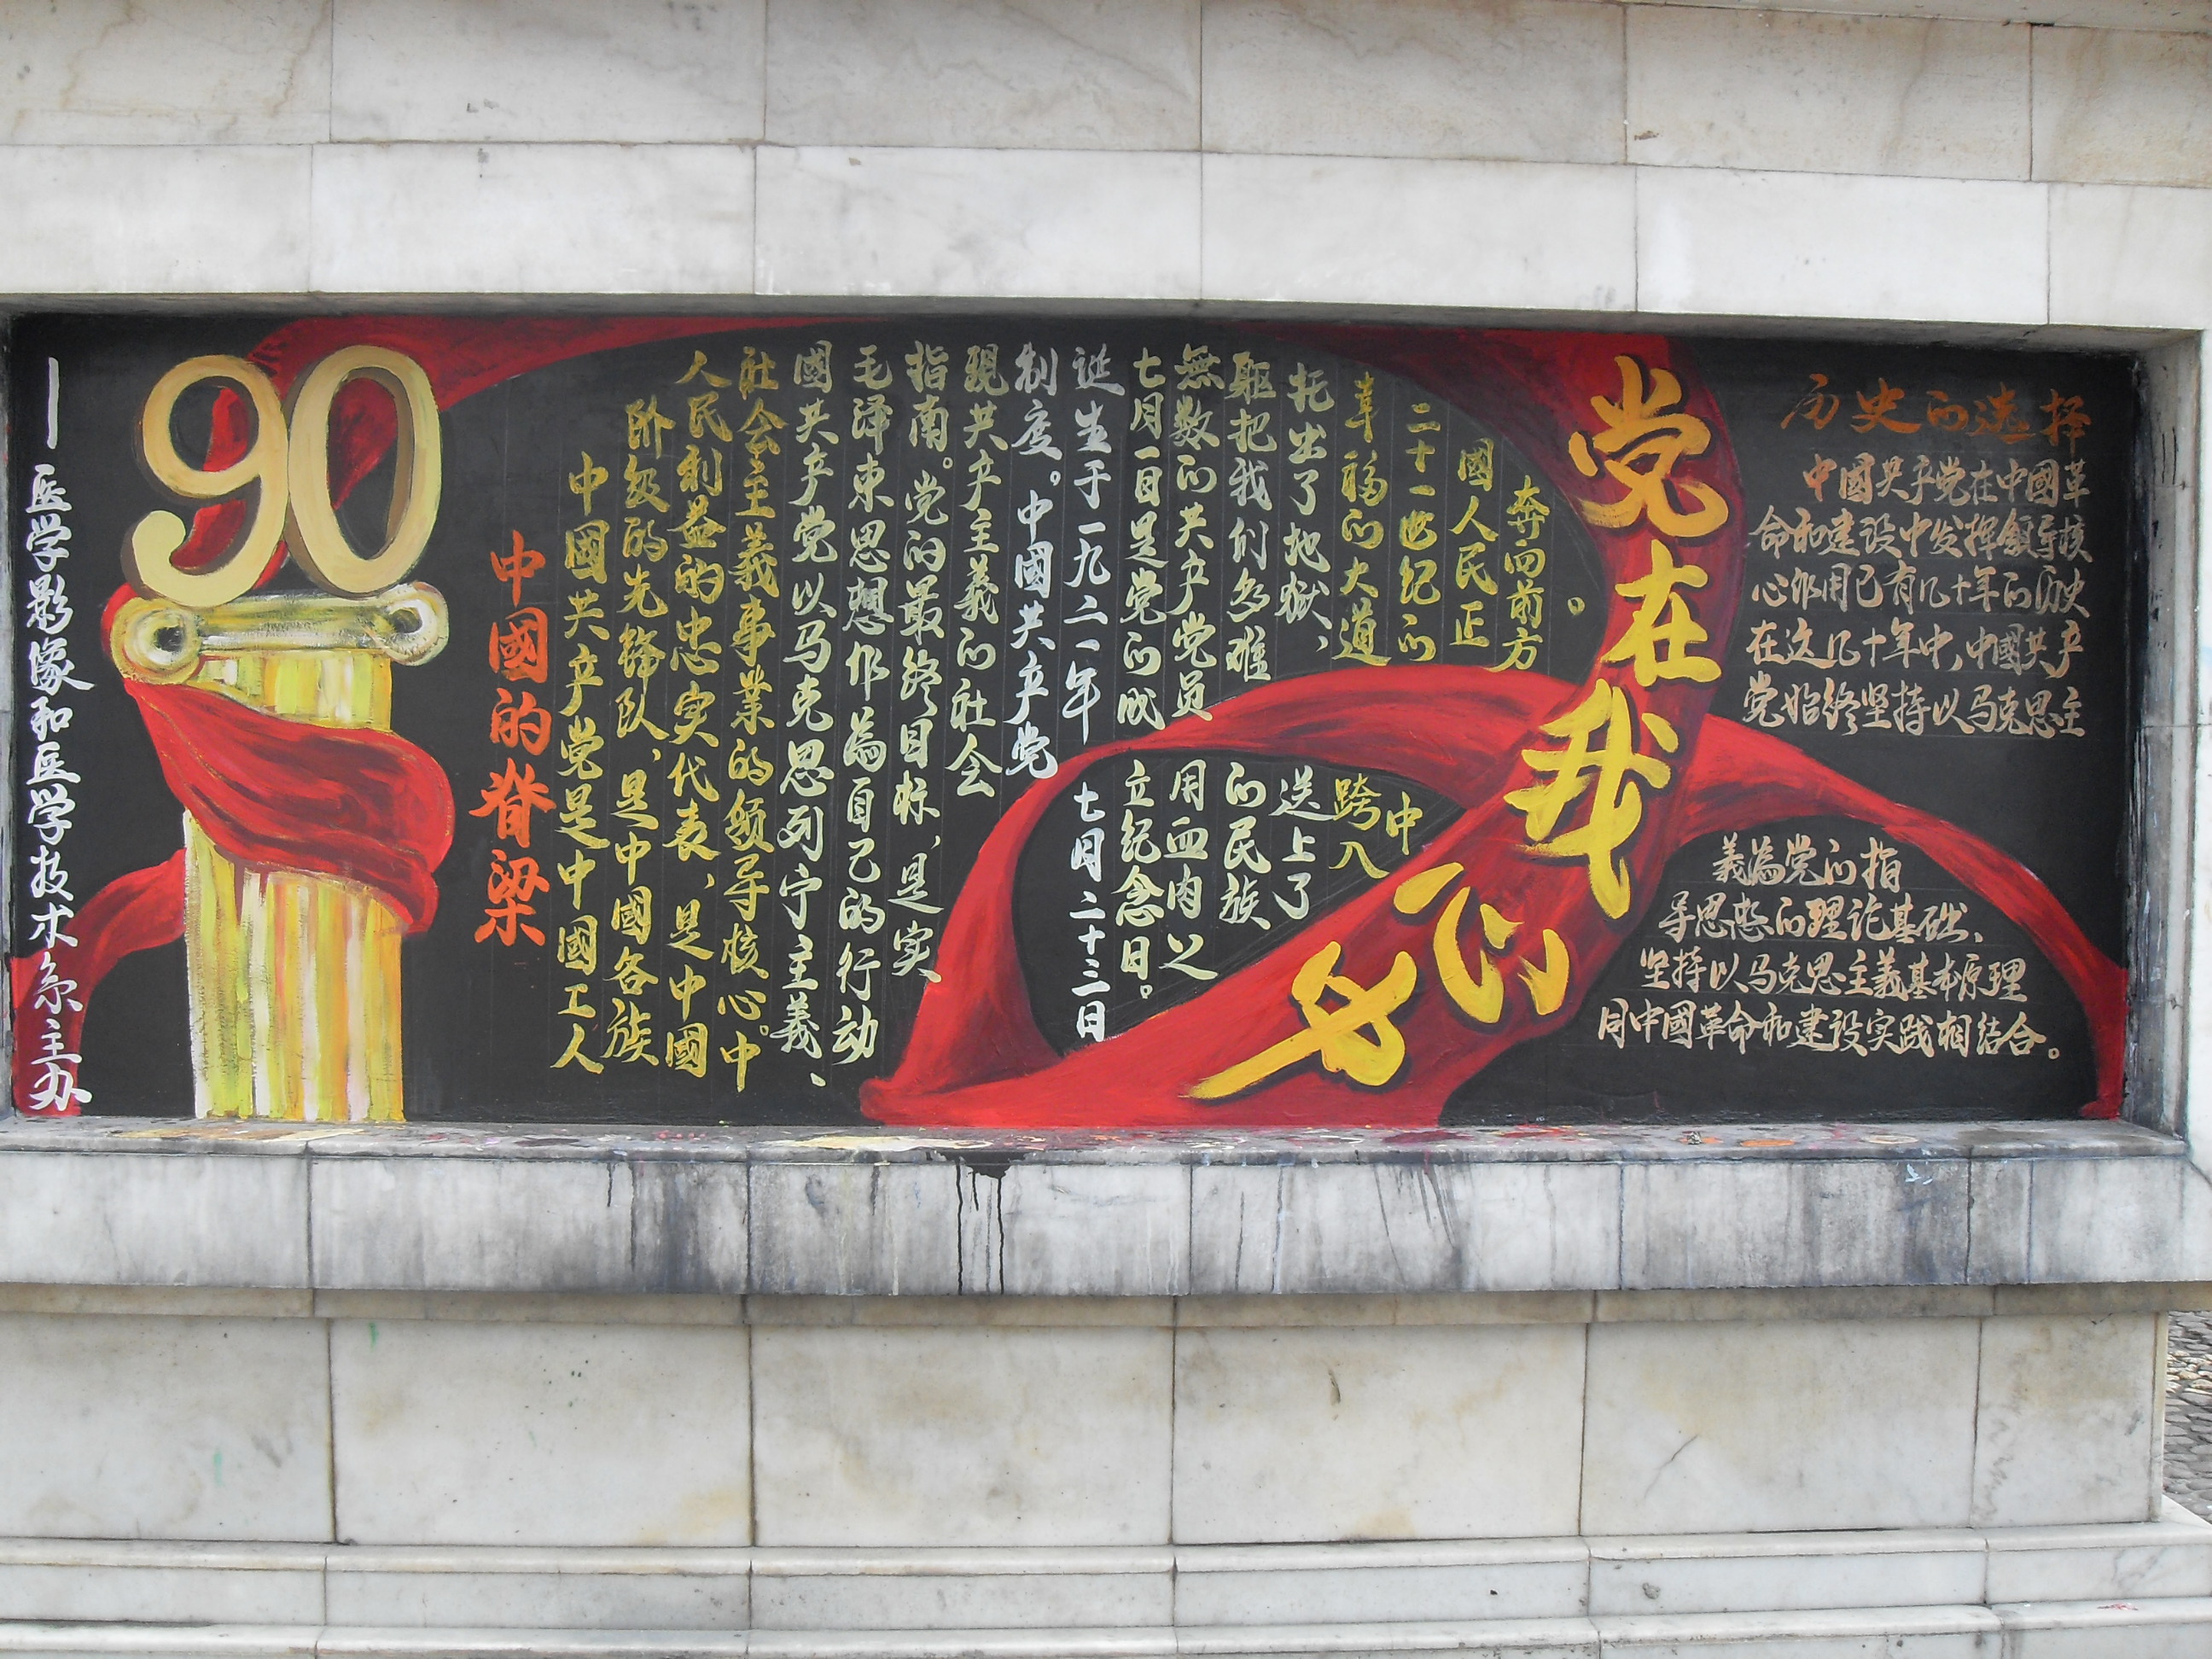 90
——医学影像和医学技术系主办
中國的脊梁
中國共产党是中國工人
阶级的先锋队，是中國各族
人民利益的忠实代表，是中國
社会主義事業的领导核心。中
國共产党以马克思列宁主義、
毛泽東思想作為自己的行动
指南。党的最终目标，是实
現共产主義的社会
制度。中國共产党
诞生于一九二一年七月二十三日
七月一日是党的成立纪念日。
無数的共产党员用血肉之
躯把我们多难的民族
托出了地狱，送上了
幸福的大道跨入
二十一世纪的中
國人民正
奔向前方。
党在我心中
历史的选择
中國共产党在中國革
命和建设中发挥领导核
心作用已有几十年的历史
在这几十年中，中國共产
党始终坚持以马克思主
義為党的指
导思想的理论基础、
坚持以马克思主義基本原理
同中國革命和建设实践相结合。